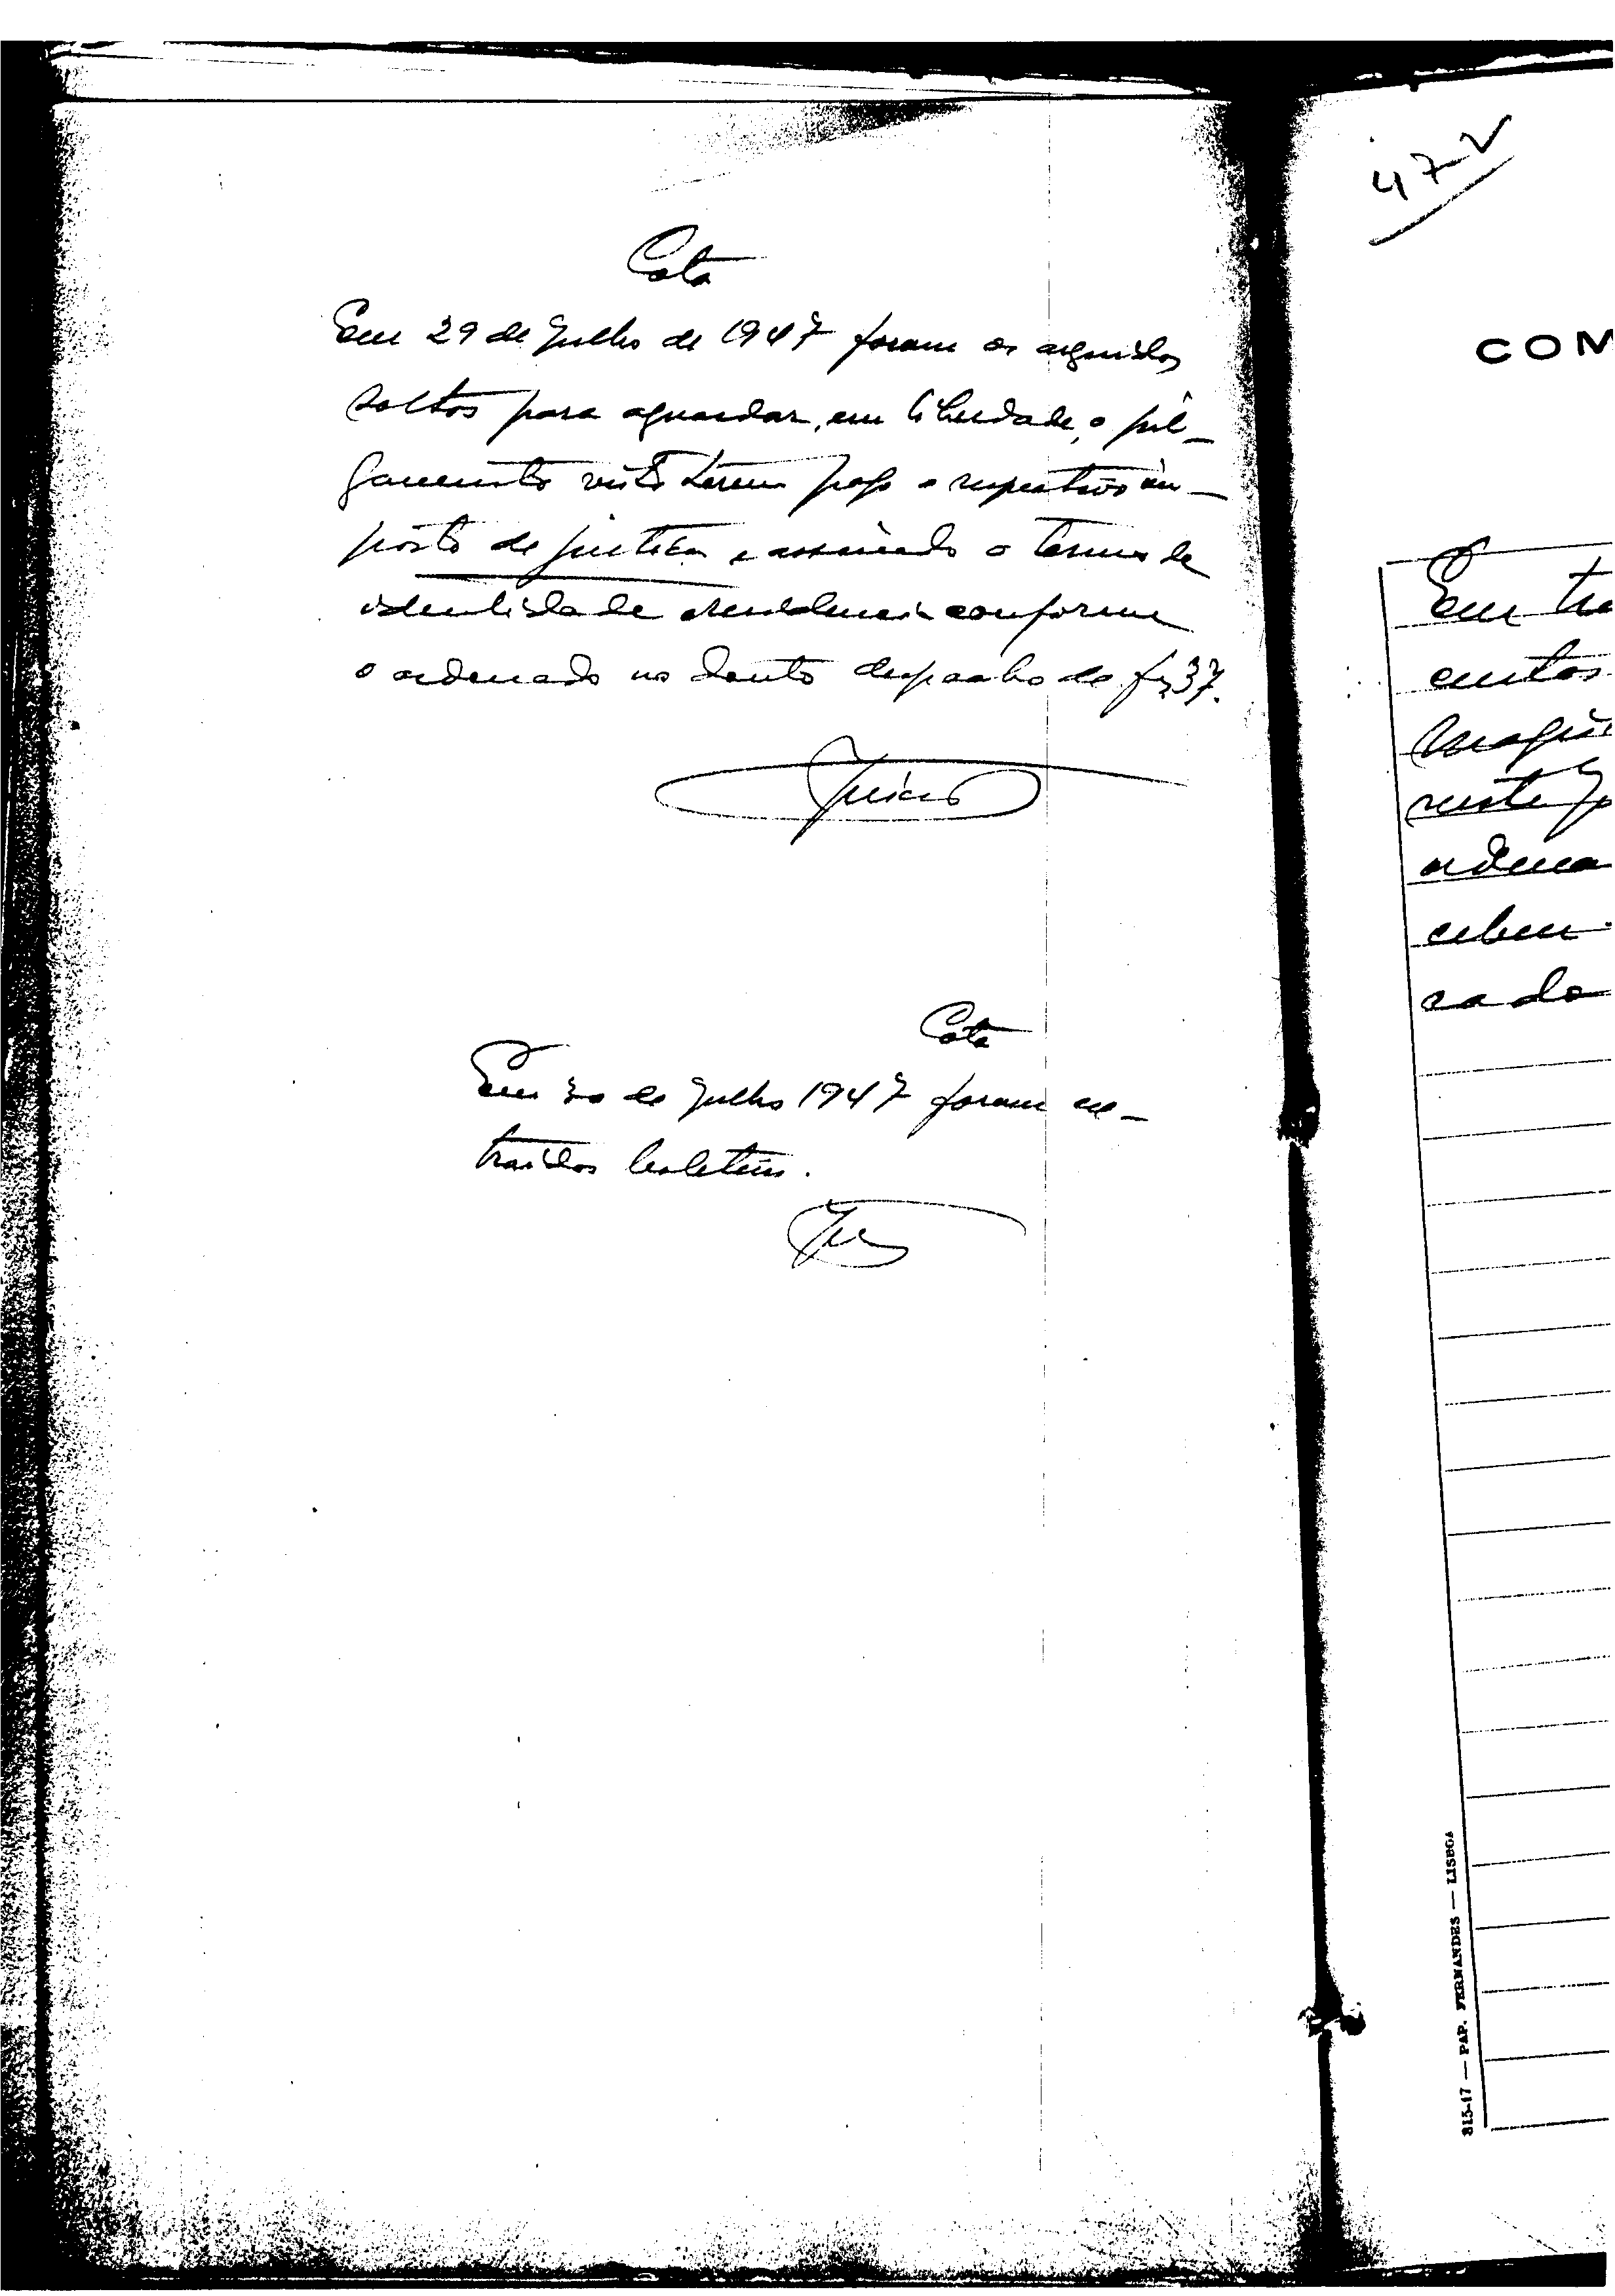 Cota
Em 29 de Julho de 1947 foram os arguidos
soltos para aguardar, em liberdade, o jul-
gamento visto terem pago o respectivo im-
posto de justiça e assinado o termo de
identidade e residencia conforme
o ordenado no douto despacho de fs 37.
Cota
Em 30 de Julho 1947 foram ex-
traidos boletins.
47-2
COM
Em
custas
neste
ordena
rado
315-17 — PAP. FERNANDES — LISBOA